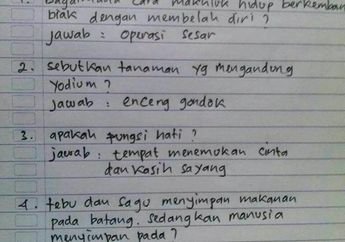 1. bagaimana cara makhluk hidup berkemban
biak dengan membelah diri ?
jawab : operasi sesar
2. sebutkan tanaman yg mengandung
yodium ?
jawab : enceng gondok
3. apakah fungsi hati ?
jawab : tempat menemukan cinta
dan kasih sayang
4. tebu dan sagu menyimpan makanan
pada batang. sedangkan manusia
menyimpan pada ?